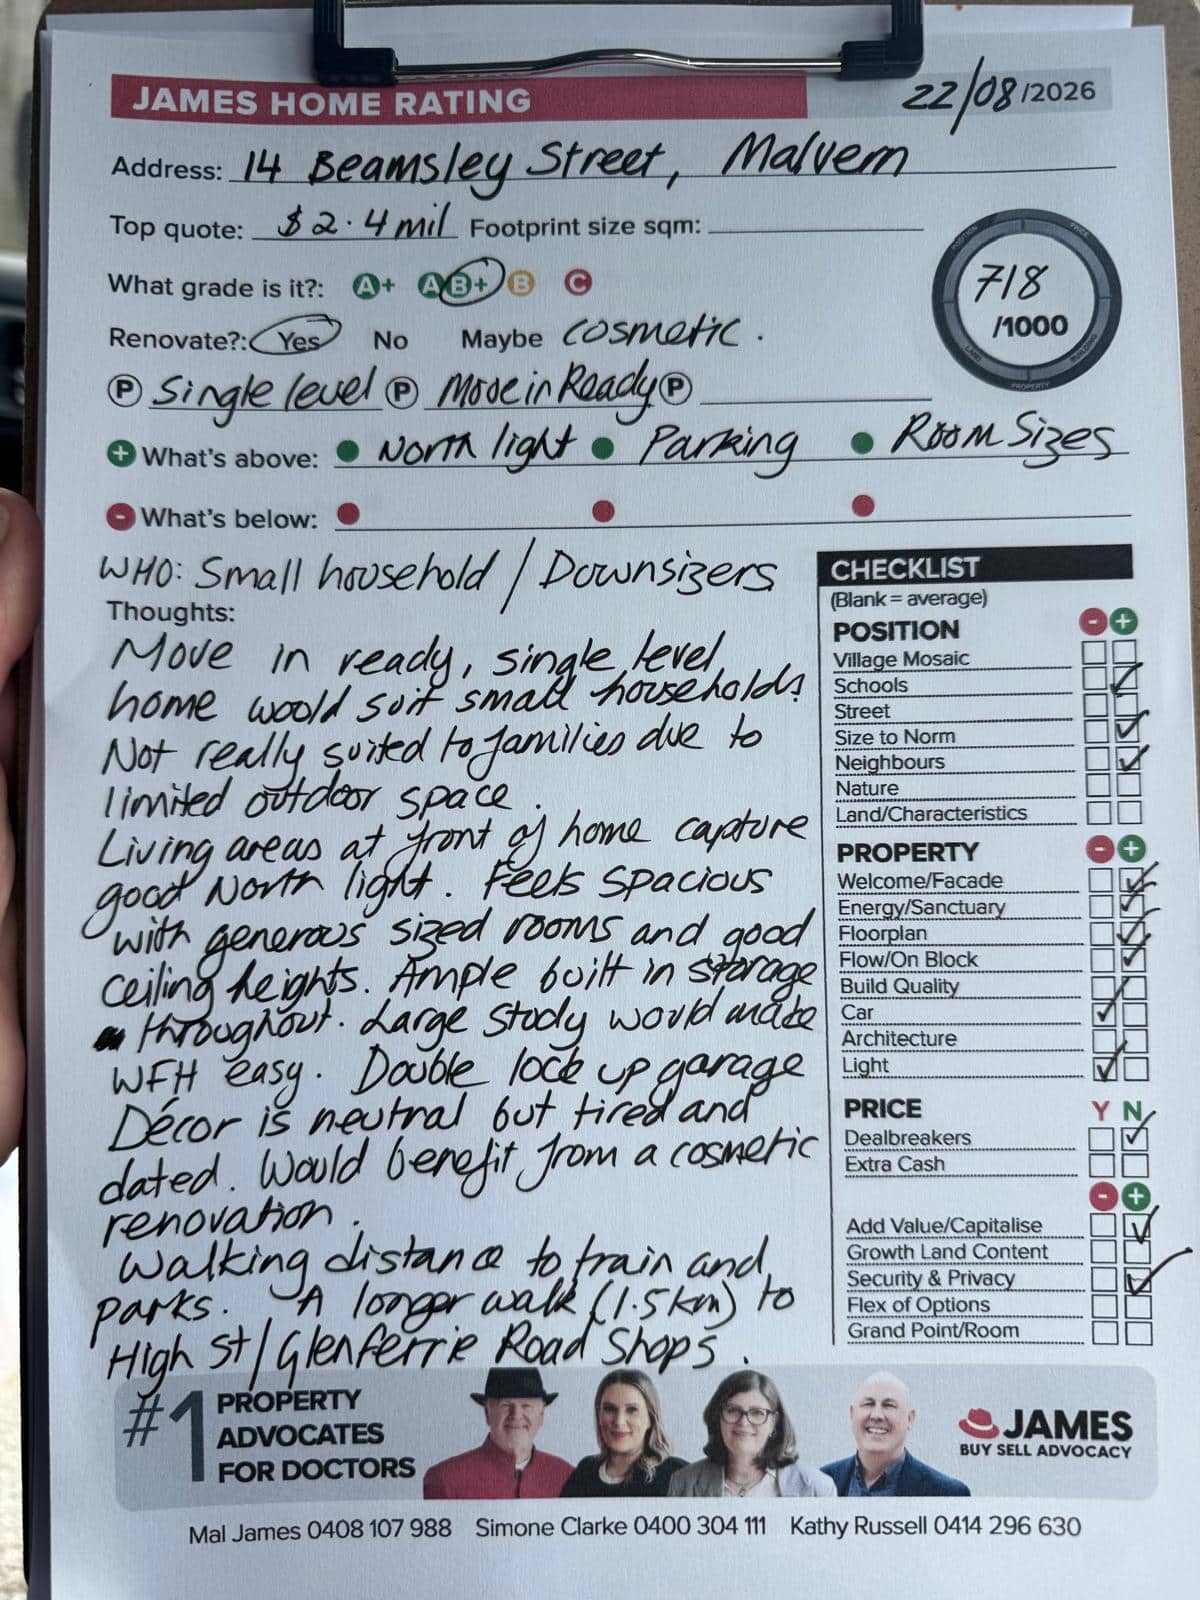 JAMES HOME RATING
22/08/2026
Address: 14 Beamsley Street, Malvern
Top quote: $2.4mil Footprint size sqm:
What grade is it?: A+ A B+ B C
718
/1000
Renovate?: Yes No Maybe cosmetic.
P Single level P Move in Ready P
+ What's above: North light Parking Room Sizes
- What's below:
WHO: Small household / Downsizers
Thoughts:
Move in ready, single level
home would suit small households.
Not really suited to families due to
limited outdoor space.
Living areas at front of home capture
good North light. Feels spacious
with generous sized rooms and good
ceiling heights. Ample built in storage
throughout. Large study would make
WFH easy. Double lock up garage
Décor is neutral but tired and
dated. Would benefit from a cosmetic
renovation.
Walking distance to train and
parks. A longer walk (1.5km) to
High St/Glenferrie Road Shops.
CHECKLIST
(Blank = average)
POSITION - +
Village Mosaic
Schools
Street
Size to Norm
Neighbours
Nature
Land/Characteristics
PROPERTY - +
Welcome/Facade
Energy/Sanctuary
Floorplan
Flow/On Block
Build Quality
Car
Architecture
Light
PRICE Y N
Dealbreakers
Extra Cash
- +
Add Value/Capitalise
Growth Land Content
Security & Privacy
Flex of Options
Grand Point/Room
#1 PROPERTY
ADVOCATES
FOR DOCTORS
JAMES
BUY SELL ADVOCACY
Mal James 0408 107 988 Simone Clarke 0400 304 111 Kathy Russell 0414 296 630